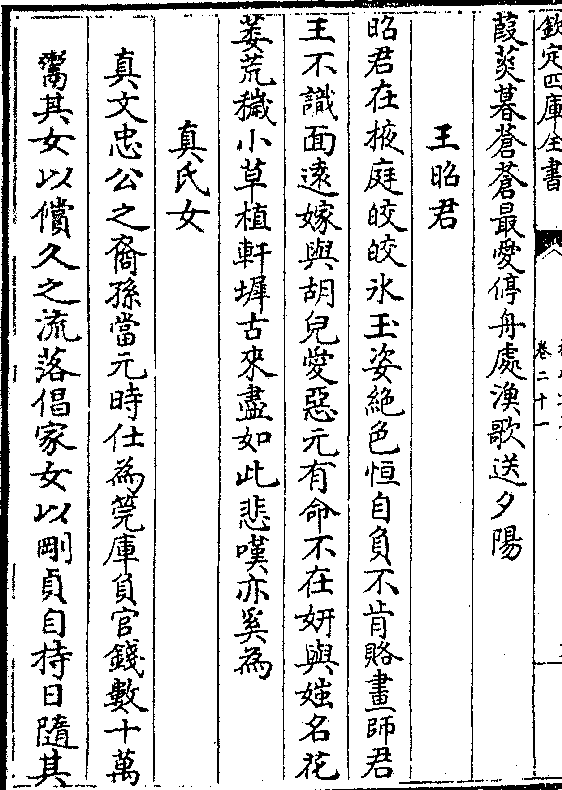 欽定四庫全書
卷二十一
葭菼暮蒼蒼最愛停舟處漁歌送夕陽
王昭君
昭君在掖庭皎皎氷玉姿絶色恒自負不肯賂畫師君
王不識面逺嫁與胡兒愛惡元有命不在妍與媸名花
委荒穢小草植軒墀古來盡如此悲嘆亦奚為
真氏女
真文忠公之裔孫當元時仕為筦庫負官錢數十萬
鬻其女以償久之流落倡家女以剛貞自持日隨其